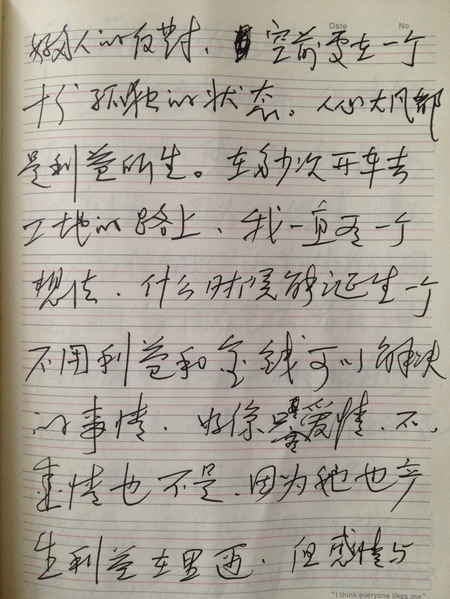 Date No
好多人的反对、空前处在一个
十分孤独的状态。人心大凡都
是利益所生。在多次开车去
工地的路上、我一直有一个
想法、什么时候能诞生一个
不用利益和金钱可以解决
的事情、好像爱情、不、
爱情也不是、因为他也产
生利益在里面、但感情与
"I think everyone likes me"